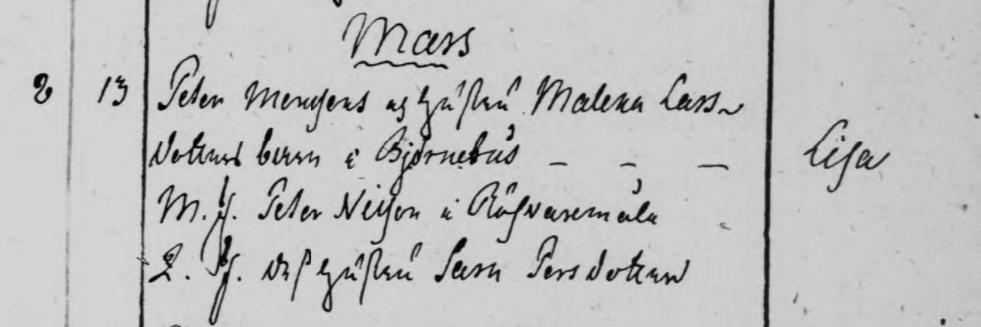 Mars
2 13 Peter Monsens og Hustru Malena Lars
dotters barn i Björnebus - - - Lisa
M. f. Peter Nilson i Råsvaremåla
Q. f. des Hustru Sara Persdotter